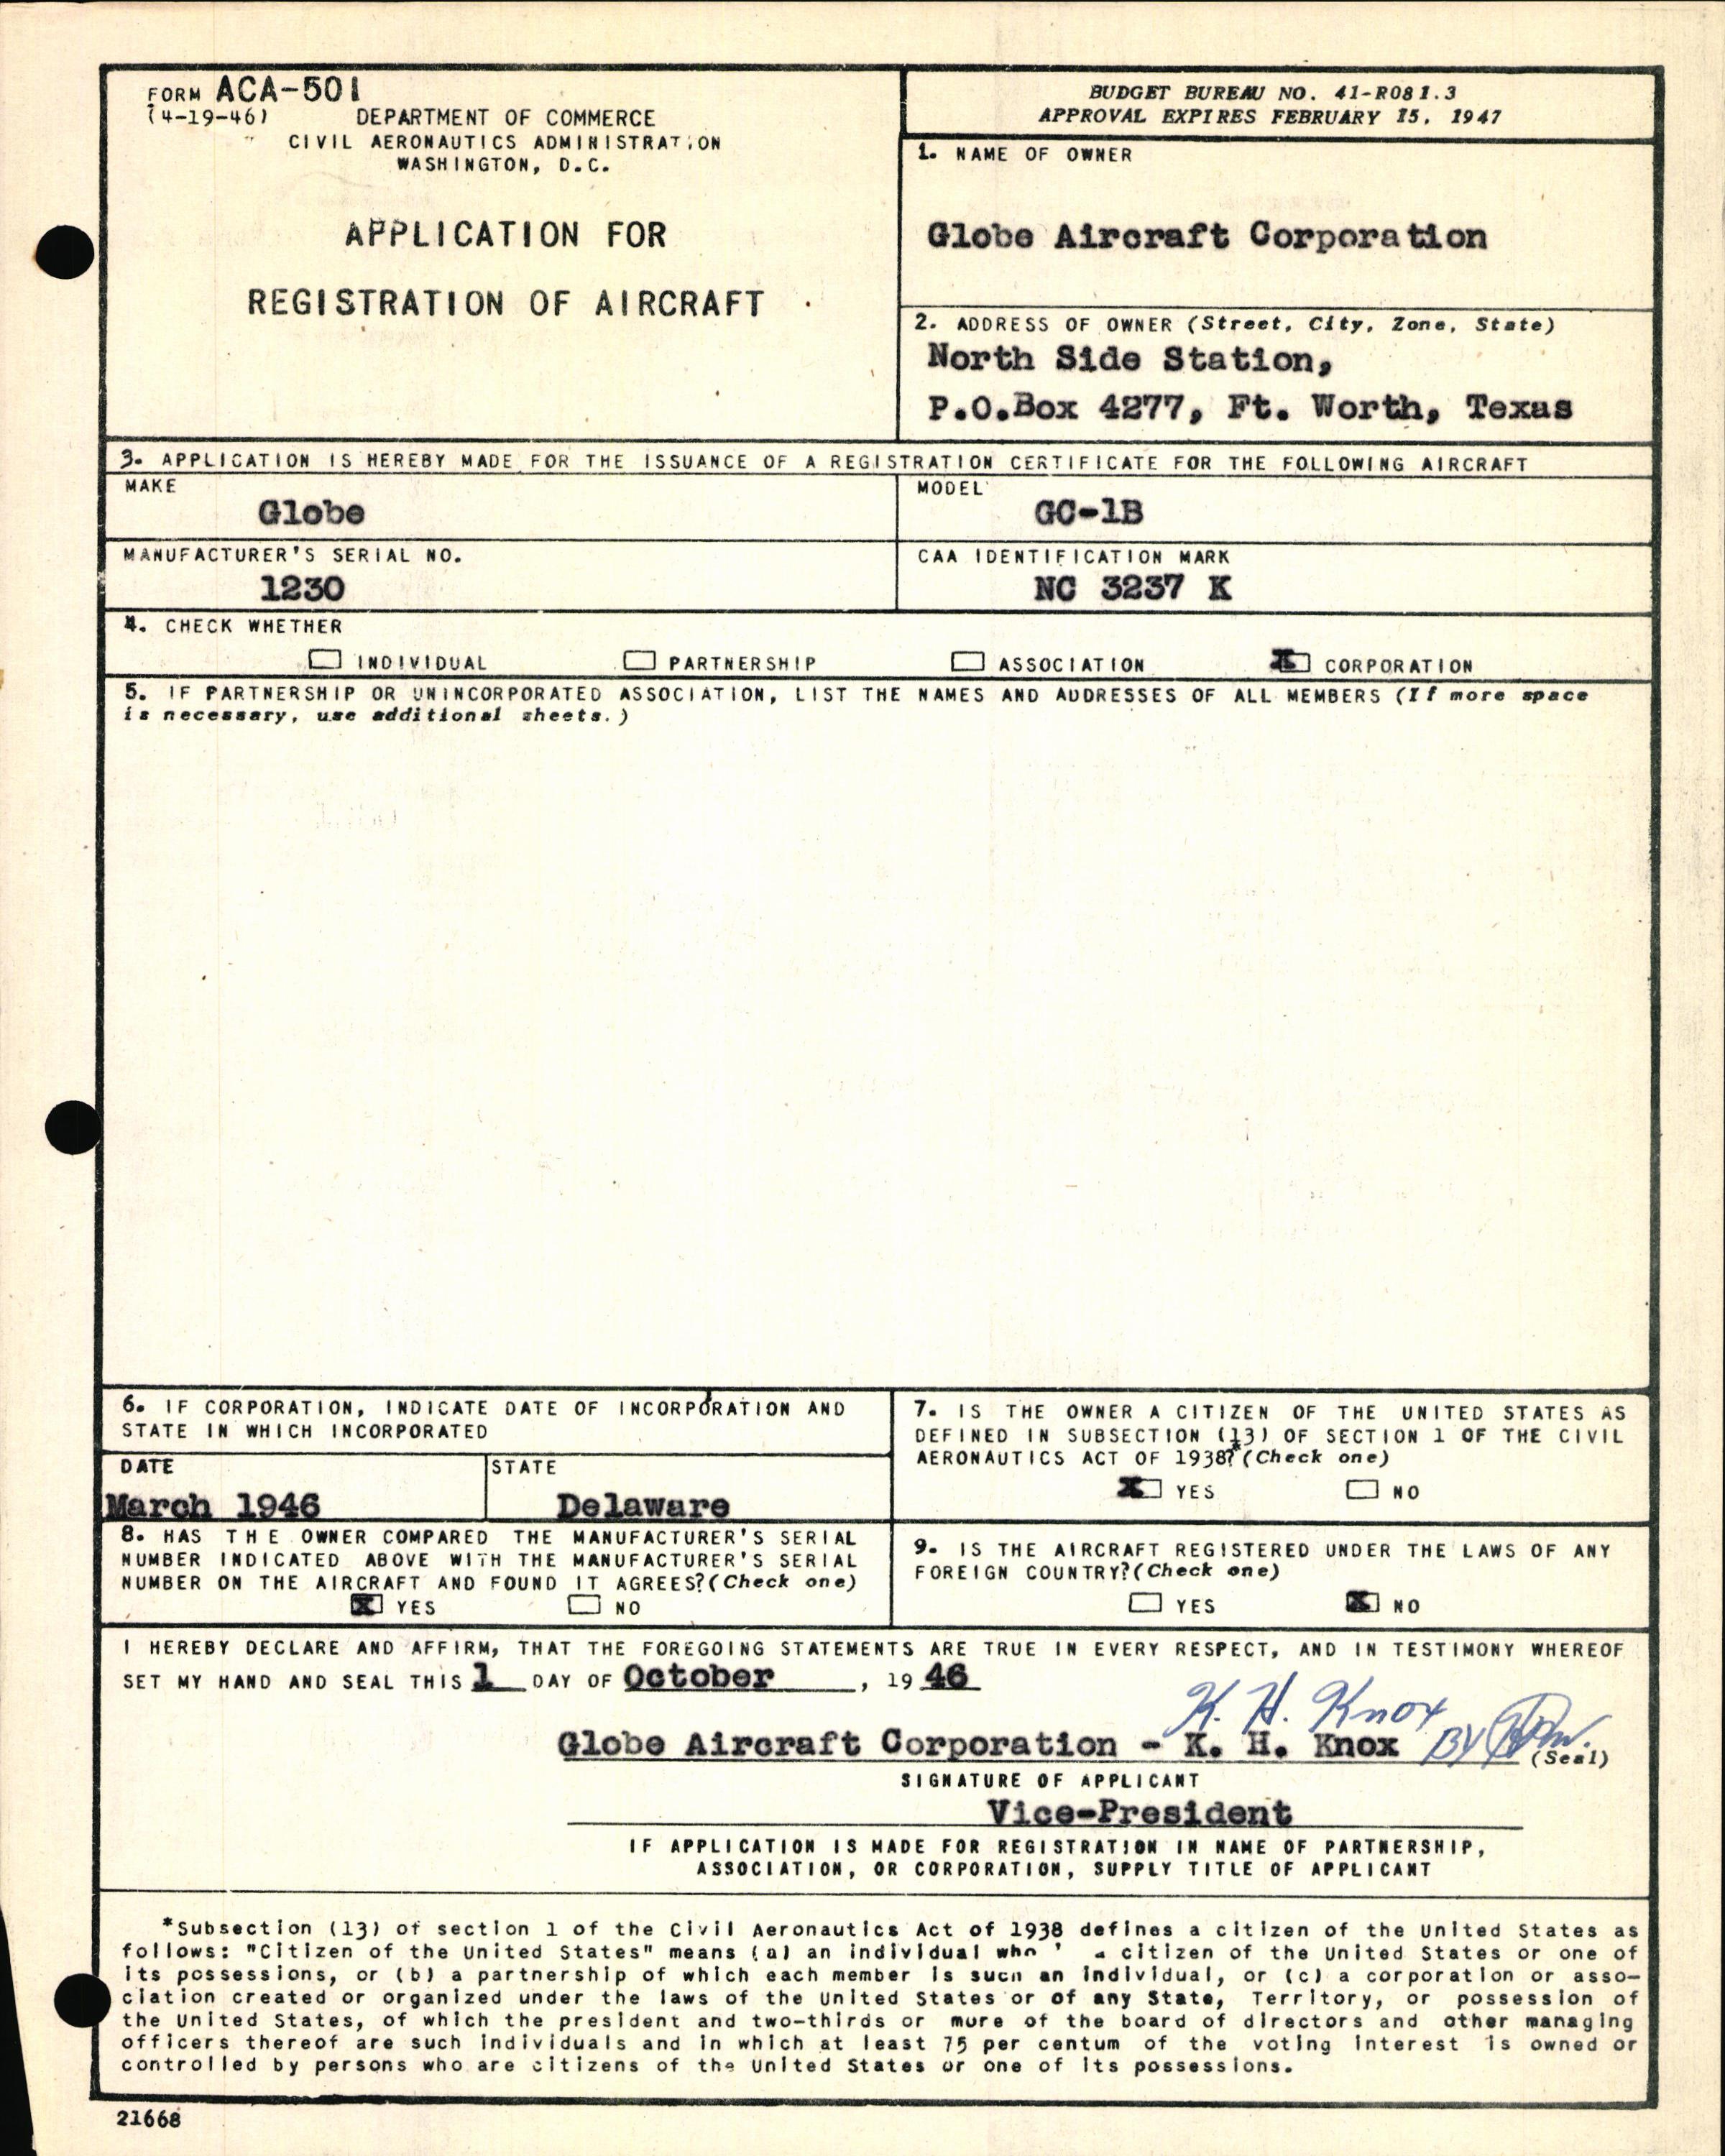 FORM ACA-501
(4-19-46)
DEPARTMENT OF COMMERCE
CIVIL AERONAUTICS ADMINISTRATION
WASHINGTON, D.C.
APPLICATION FOR
REGISTRATION OF AIRCRAFT
BUDGET BUREAU NO. 41-R081.3
APPROVAL EXPIRES FEBRUARY 15, 1947
1. NAME OF OWNER
Globe Aircraft Corporation
2. ADDRESS OF OWNER (Street, City, Zone, State)
North Side Station,
P.O.Box 4277, Ft. Worth, Texas
3. APPLICATION IS HEREBY MADE FOR THE ISSUANCE OF A REGISTRATION CERTIFICATE FOR THE FOLLOWING AIRCRAFT
MAKE
Globe
MODEL
GC-1B
MANUFACTURER'S SERIAL NO.
1230
CAA IDENTIFICATION MARK
NC 3237 K
4. CHECK WHETHER
INDIVIDUAL PARTNERSHIP ASSOCIATION X CORPORATION
5. IF PARTNERSHIP OR UNINCORPORATED ASSOCIATION, LIST THE NAMES AND ADDRESSES OF ALL MEMBERS (If more space
is necessary, use additional sheets.)
6. IF CORPORATION, INDICATE DATE OF INCORPORATION AND
STATE IN WHICH INCORPORATED
DATE
March 1946
STATE
Delaware
7. IS THE OWNER A CITIZEN OF THE UNITED STATES AS
DEFINED IN SUBSECTION (13) OF SECTION 1 OF THE CIVIL
AERONAUTICS ACT OF 1938?* (Check one)
X YES NO
8. HAS THE OWNER COMPARED THE MANUFACTURER'S SERIAL
NUMBER INDICATED ABOVE WITH THE MANUFACTURER'S SERIAL
NUMBER ON THE AIRCRAFT AND FOUND IT AGREES? (Check one)
X YES NO
9. IS THE AIRCRAFT REGISTERED UNDER THE LAWS OF ANY
FOREIGN COUNTRY? (Check one)
YES X NO
I HEREBY DECLARE AND AFFIRM, THAT THE FOREGOING STATEMENTS ARE TRUE IN EVERY RESPECT, AND IN TESTIMONY WHEREOF
SET MY HAND AND SEAL THIS 1 DAY OF October, 19 46
K. H. Knox
Globe Aircraft Corporation - K. H. Knox BY (Seal)
SIGNATURE OF APPLICANT
Vice-President
IF APPLICATION IS MADE FOR REGISTRATION IN NAME OF PARTNERSHIP,
ASSOCIATION, OR CORPORATION, SUPPLY TITLE OF APPLICANT
*Subsection (13) of section 1 of the Civil Aeronautics Act of 1938 defines a citizen of the United States as
follows: "Citizen of the United States" means (a) an individual who a citizen of the United States or one of
its possessions, or (b) a partnership of which each member is such an individual, or (c) a corporation or asso-
ciation created or organized under the laws of the United States or of any State, Territory, or possession of
the United States, of which the president and two-thirds or more of the board of directors and other managing
officers thereof are such individuals and in which at least 75 per centum of the voting interest is owned or
controlled by persons who are citizens of the United States or one of its possessions.
21668